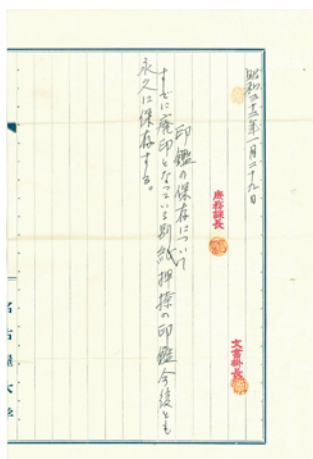 昭和三十三年一月二十九日
庶務課長
文書掛長
印鑑の保存について
すでに廃印となっている別紙押捺の印鑑今後とも
永久に保存する。
名古屋大学